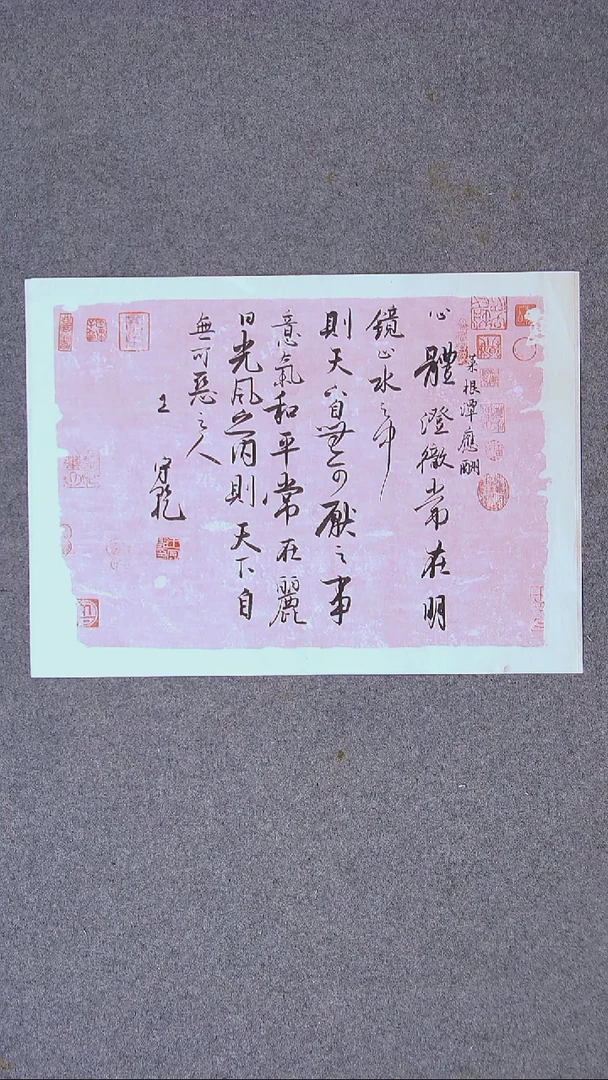 菜根潭應酬
心體澄徹常在明
鏡止水之中
則天下自無可厭之事
意氣和平常在麗
日光風之內則天下自
無可惡之人
王守乾